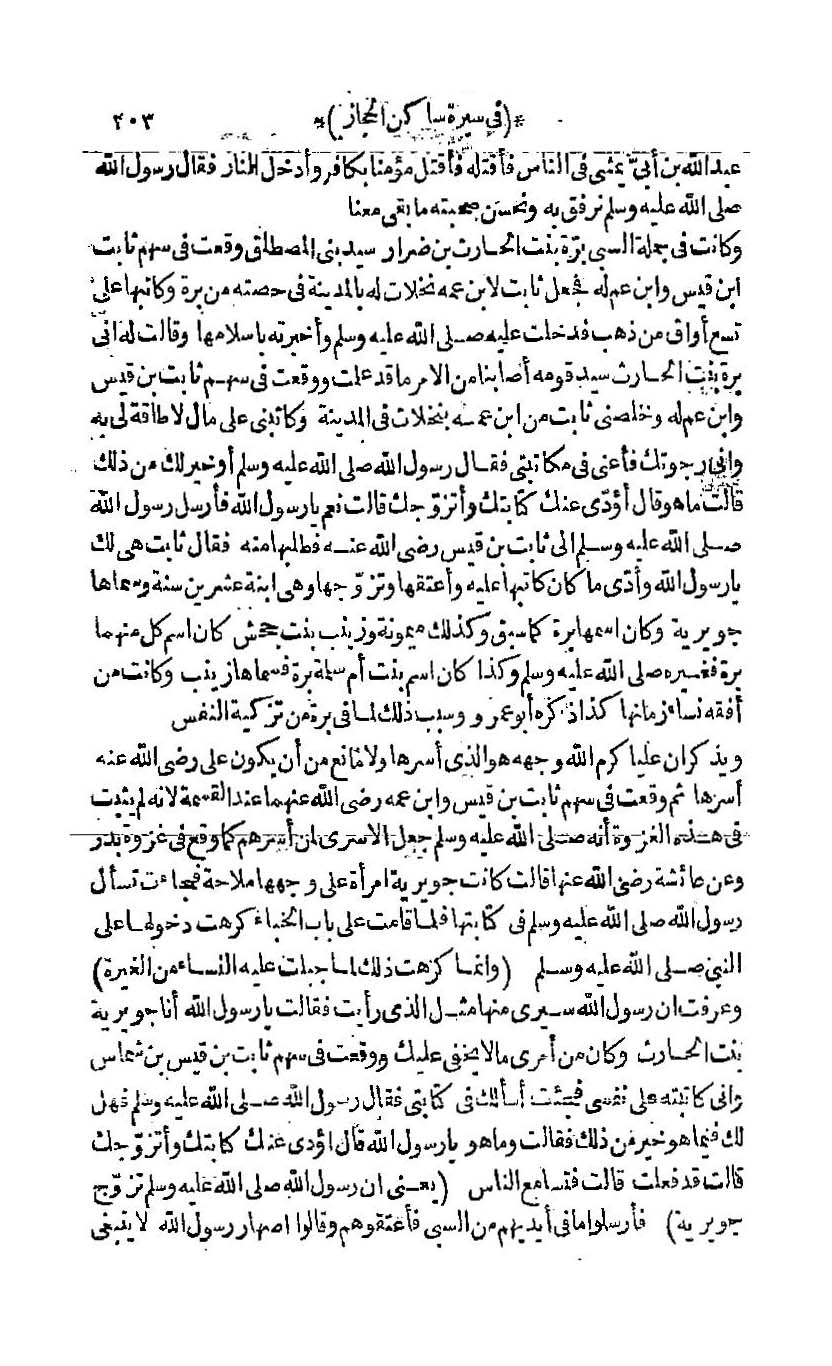 *(في سيرة ساكن الحجاز)* ٢٠٣
عبد الله بن أبيّ يمشى فى الناس فأقتله فأقتل مؤمنا بكافر وأدخل النار فقال رسول الله
صلى الله عليه وسلم نرفق به ونحسن صحبته ما بقى معنا
وكانت فى جملة السبى برّة بنت الحارث بن ضرار سيد بنى المصطلق وقعت فى سهم ثابت
ابن قيس وابن عم له فجعل ثابت لابن عمه نخلات له بالمدينة فى حصته من برة وكاتبها على
تسع أواق من ذهب فدخلت عليه صلى الله عليه وسلم وأخبرته باسلامها وقالت له انى
برة بنت الحارث سيد قومه أصابنا من الامر ما قد علمت ووقعت فى سهم ثابت بن قيس
وابن عم له وخلصنى ثابت من ابن عمه بنخلات فى المدينة وكاتبنى على مال لا طاقة لى به
وانى رجوتك فأعنى فى مكاتبتى فقال رسول الله صلى الله عليه وسلم أو خير لك من ذلك
قالت ما هو قال أؤدّى عنك كتابتك وأتزوّجك قالت نعم يا رسول الله فأرسل رسول الله
صلى الله عليه وسلم الى ثابت بن قيس رضى الله عنه فطلبها منه فقال ثابت هى لك
يا رسول الله وأدّى ما كان كاتبها عليه وأعتقها وتزوّجها وهى ابنة عشرين سنة وسماها
جويرية وكان اسمها برة كما سبق وكذلك ميمونة وزينب بنت جحش كان اسم كل منهما
برة فغيره صلى الله عليه وسلم وكذا كان اسم بنت أم سلمة برة فسماها زينب وكانت من
أفقه نساء زمانها كذا ذكره أبو عمرو وسبب ذلك لما فى برة من تزكية النفس
ويذكر ان عليا كرم الله وجهه هو الذى أسرها ولا مانع من أن يكون على رضى الله عنه
أسرها ثم وقعت فى سهم ثابت بن قيس وابن عمه رضى الله عنهما عند القسمة لانه لم يثبت
فى هذه الغزوة أنه صلى الله عليه وسلم جعل الاسرى لمن أسرهم كما وقع فى غزوة بدر
وعن عائشة رضى الله عنها قالت كانت جويرية امرأة على وجهها ملاحة فجاءت تسأل
رسول الله صلى الله عليه وسلم فى كتابتها فلما قامت على باب الخباء كرهت دخولها على
النبى صلى الله عليه وسلم (وانما كرهت ذلك لما جبلت عليه النساء من الغيرة)
وعرفت ان رسول الله سيرى منها مثل الذى رأيت فقالت يا رسول الله أنا جويرية
بنت الحارث وكان من أمرى ما لا يخفى عليك ووقعت فى سهم ثابت بن قيس بن شماس
وانى كاتبته على نفسى فجئت أسألك فى كتابتى فقال رسول الله صلى الله عليه وسلم فهل
لك فيما هو خير من ذلك فقالت وما هو يا رسول الله قال اؤدى عنك كتابتك وأتزوّجك
قالت قد فعلت قالت فتسامع الناس (يعنى ان رسول الله صلى الله عليه وسلم تزوّج
جويرية) فأرسلوا ما فى أيديهم من السبى فأعتقوهم وقالوا اصهار رسول الله لا ينبغى